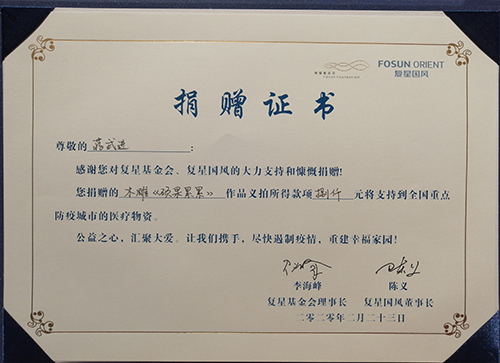 复星基金会
FOSUN FOUNDATION
FOSUN ORIENT
复星国风
捐赠证书
尊敬的 蒋武进 :
感谢您对复星基金会、复星国风的大力支持和慷慨捐赠!
您捐赠的 木雕《硕果累累》 作品义拍所得款项 捌仟 元将支持到全国重点
防疫城市的医疗物资。
公益之心,汇聚大爱。让我们携手,尽快遏制疫情,重建幸福家园!
李海峰 陈义
复星基金会理事长 复星国风董事长
二零二零年二月二十三日